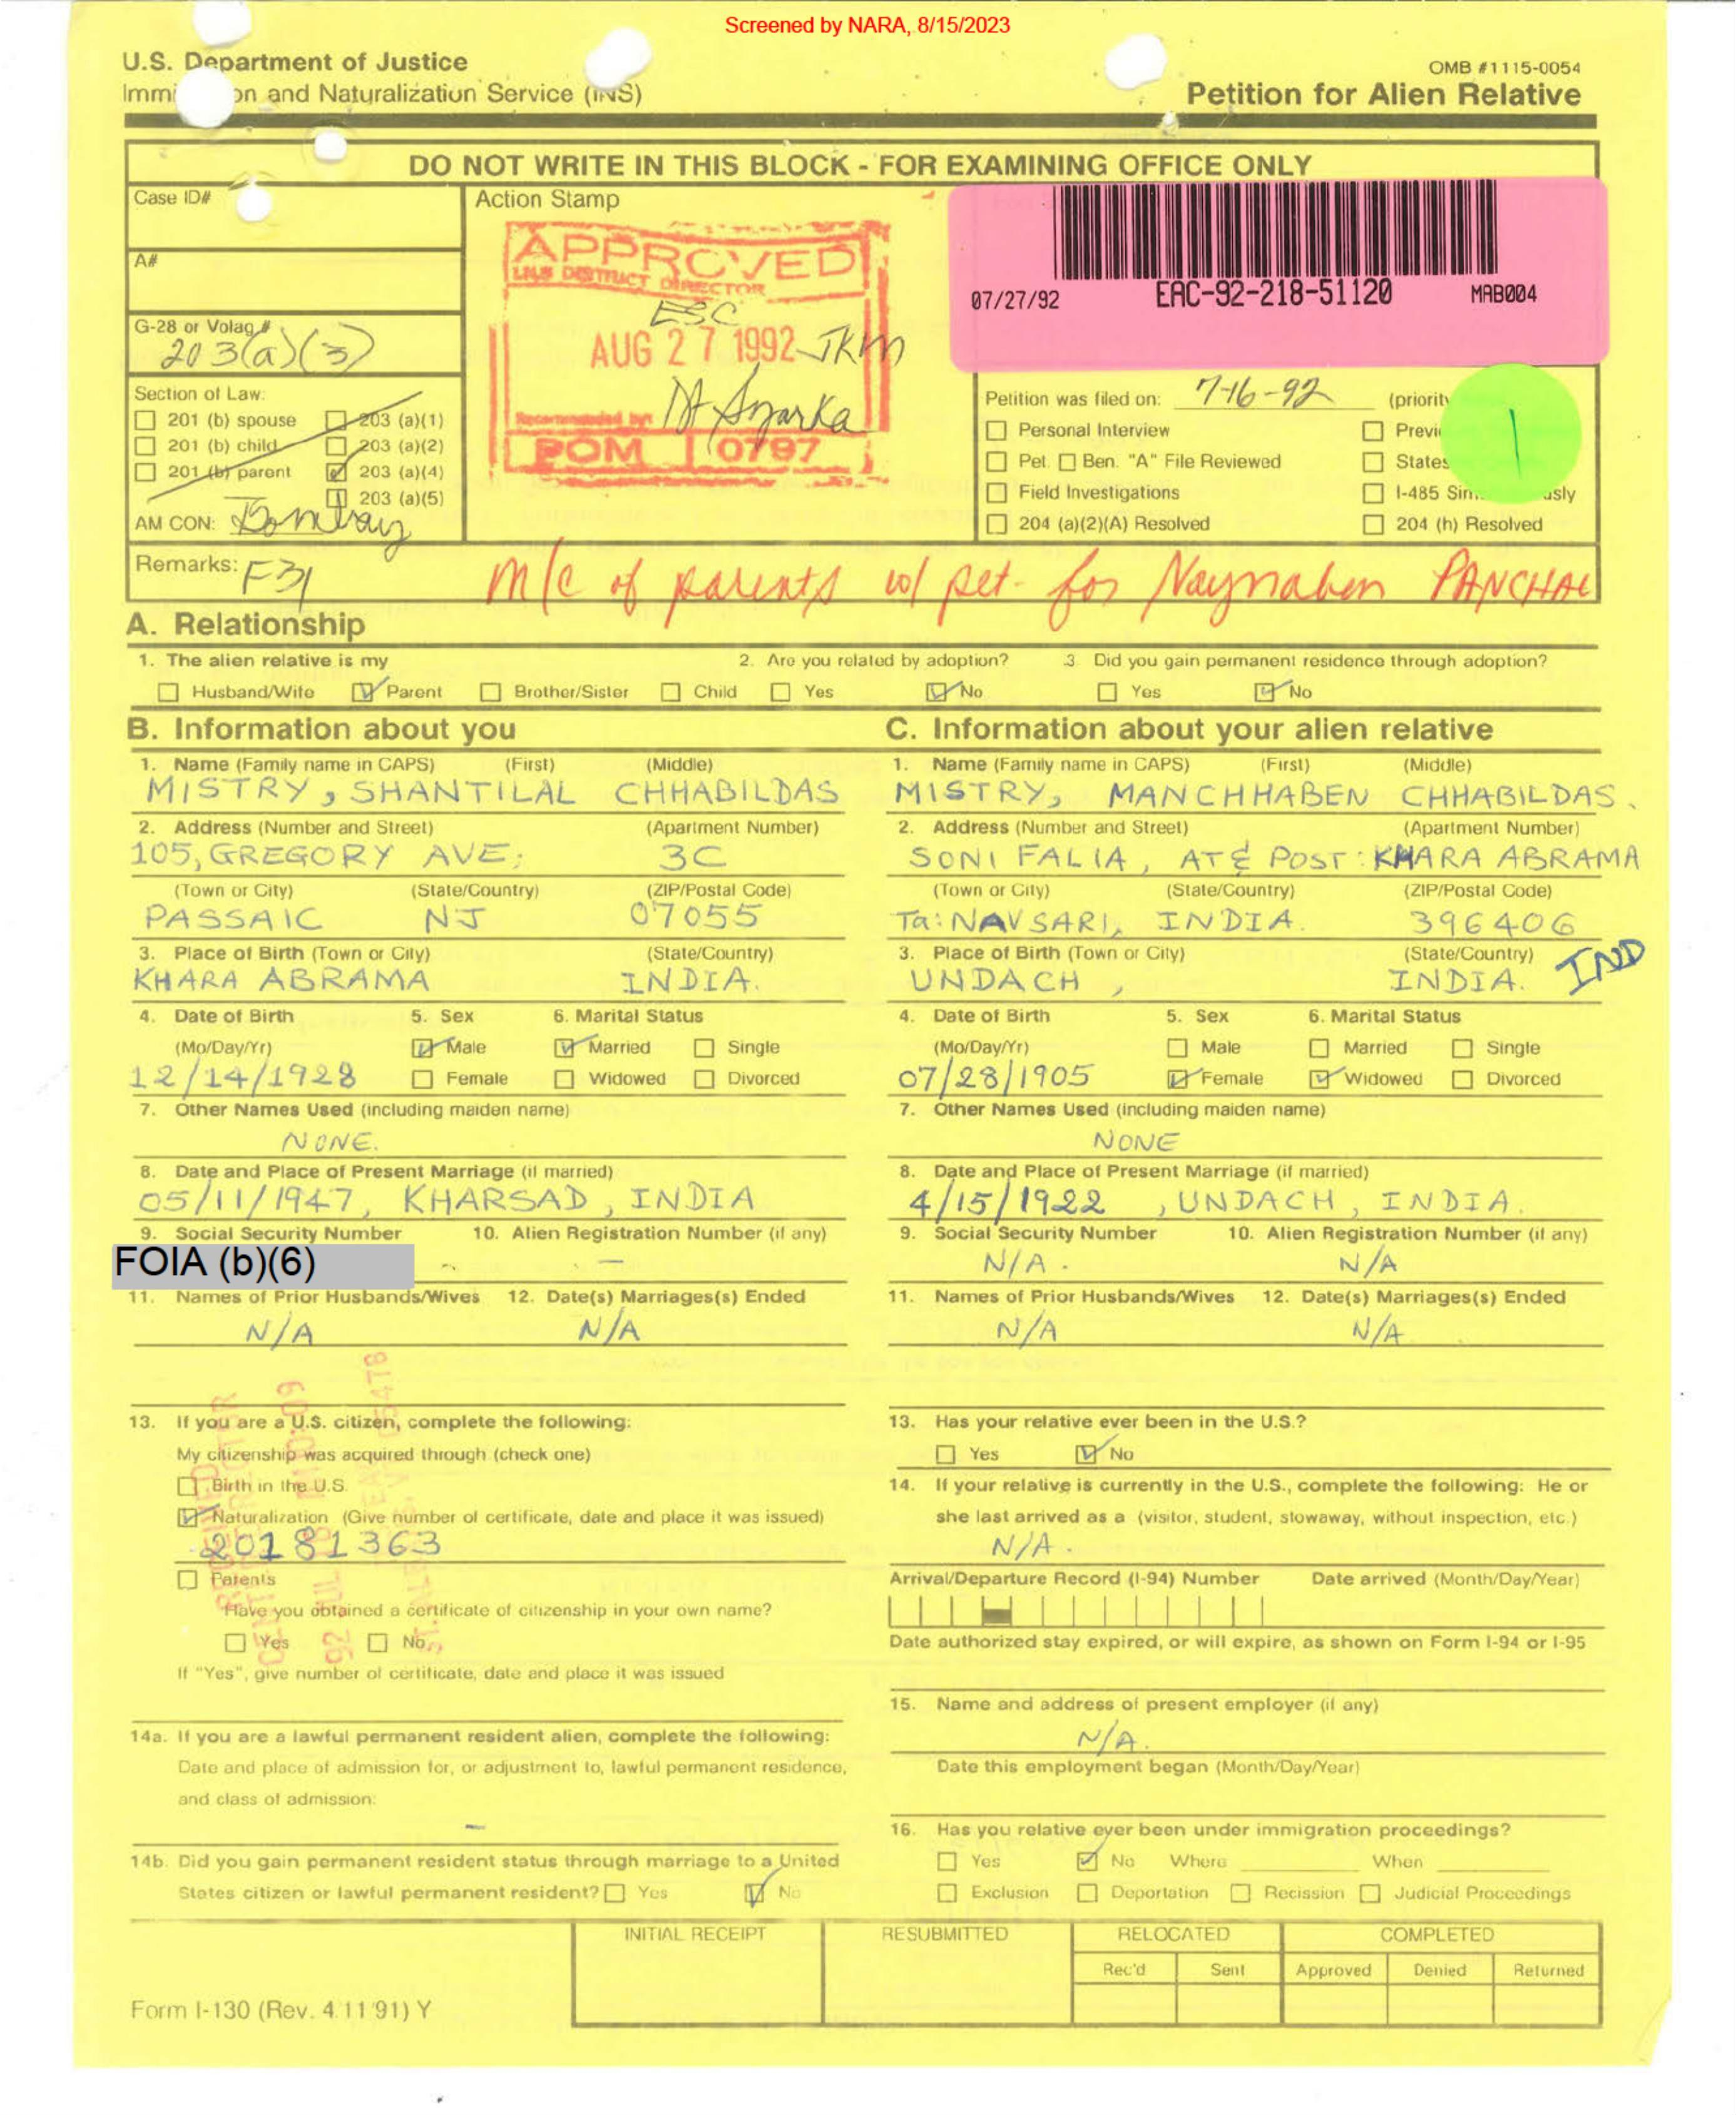 Screened by NARA, 8/15/2023
U.S. Department of Justice
OMB #1115-0054
Immi on and Naturalization Service (INS)
Petition for Alien Relative
DO NOT WRITE IN THIS BLOCK - FOR EXAMINING OFFICE ONLY
Case ID#
Action Stamp
A#
G-28 or Volag #
203(a)(3)
APPROVED
INS DISTRICT DIRECTOR
ESC
AUG 27 1992 JKM
Recommended by:
POM 0797
07/27/92 EAC-92-218-51120 MAB004
Section of Law:
201 (b) spouse 203 (a)(1)
201 (b) child 203 (a)(2)
201 (b) parent 203 (a)(4)
203 (a)(5)
AM CON: Bombay
Petition was filed on: 7-16-92 (priority
Personal Interview Previ
Pet. Ben. "A" File Reviewed States
Field Investigations I-485 Sim usly
204 (a)(2)(A) Resolved 204 (h) Resolved
1
Remarks: F31 M/C of parents w/ pet. for Naynaben PANCHAL
A. Relationship
1. The alien relative is my 2. Are you related by adoption? 3. Did you gain permanent residence through adoption?
Husband/Wife Parent Brother/Sister Child Yes No Yes No
B. Information about you
1. Name (Family name in CAPS) (First) (Middle)
MISTRY, SHANTILAL CHHABILDAS
2. Address (Number and Street) (Apartment Number)
105, GREGORY AVE; 3C
(Town or City) (State/Country) (ZIP/Postal Code)
PASSAIC NJ 07055
3. Place of Birth (Town or City) (State/Country)
KHARA ABRAMA INDIA.
4. Date of Birth 5. Sex 6. Marital Status
(Mo/Day/Yr) Male Married Single
12/14/1928 Female Widowed Divorced
7. Other Names Used (including maiden name)
NONE.
8. Date and Place of Present Marriage (if married)
05/11/1947, KHARSAD, INDIA
9. Social Security Number 10. Alien Registration Number (if any)
FOIA (b)(6) - —
11. Names of Prior Husbands/Wives 12. Date(s) Marriages(s) Ended
N/A N/A
13. If you are a U.S. citizen, complete the following:
My citizenship was acquired through (check one)
Birth in the U.S.
Naturalization (Give number of certificate, date and place it was issued)
20181363
Parents
Have you obtained a certificate of citizenship in your own name?
Yes No
If "Yes", give number of certificate, date and place it was issued
14a. If you are a lawful permanent resident alien, complete the following:
Date and place of admission for, or adjustment to, lawful permanent residence,
and class of admission:
—
14b. Did you gain permanent resident status through marriage to a United
States citizen or lawful permanent resident? Yes No
C. Information about your alien relative
1. Name (Family name in CAPS) (First) (Middle)
MISTRY, MANCHHABEN CHHABILDAS.
2. Address (Number and Street) (Apartment Number)
SONI FALIA, AT & POST: KHARA ABRAMA
(Town or City) (State/Country) (ZIP/Postal Code)
Ta: NAVSARI, INDIA. 396406
3. Place of Birth (Town or City) (State/Country)
UNDACH, INDIA. IND
4. Date of Birth 5. Sex 6. Marital Status
(Mo/Day/Yr) Male Married Single
07/28/1905 Female Widowed Divorced
7. Other Names Used (including maiden name)
NONE
8. Date and Place of Present Marriage (if married)
4/15/1922, UNDACH, INDIA.
9. Social Security Number 10. Alien Registration Number (if any)
N/A. N/A
11. Names of Prior Husbands/Wives 12. Date(s) Marriages(s) Ended
N/A N/A
13. Has your relative ever been in the U.S.?
Yes No
14. If your relative is currently in the U.S., complete the following: He or
she last arrived as a (visitor, student, stowaway, without inspection, etc.)
N/A.
Arrival/Departure Record (I-94) Number Date arrived (Month/Day/Year)
Date authorized stay expired, or will expire, as shown on Form I-94 or I-95
15. Name and address of present employer (if any)
N/A.
Date this employment began (Month/Day/Year)
16. Has you relative ever been under immigration proceedings?
Yes No Where When
Exclusion Deportation Recission Judicial Proceedings
INITIAL RECEIPT RESUBMITTED RELOCATED COMPLETED
Rec'd Sent Approved Denied Returned
Form I-130 (Rev. 4/11/91) Y